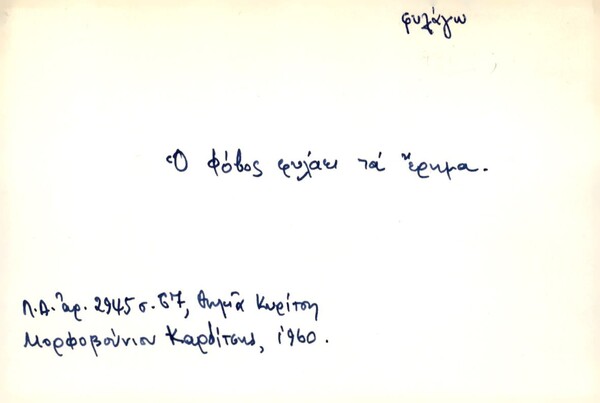 φυλάγω
Ὁ φόβος φυλάει τά ἔρημα.
Λ.Α. ἀρ. 2945 σ. 67, Θωμᾶ Κυρίτση
Μορφοβούνιον Καρδίτσης, 1960.